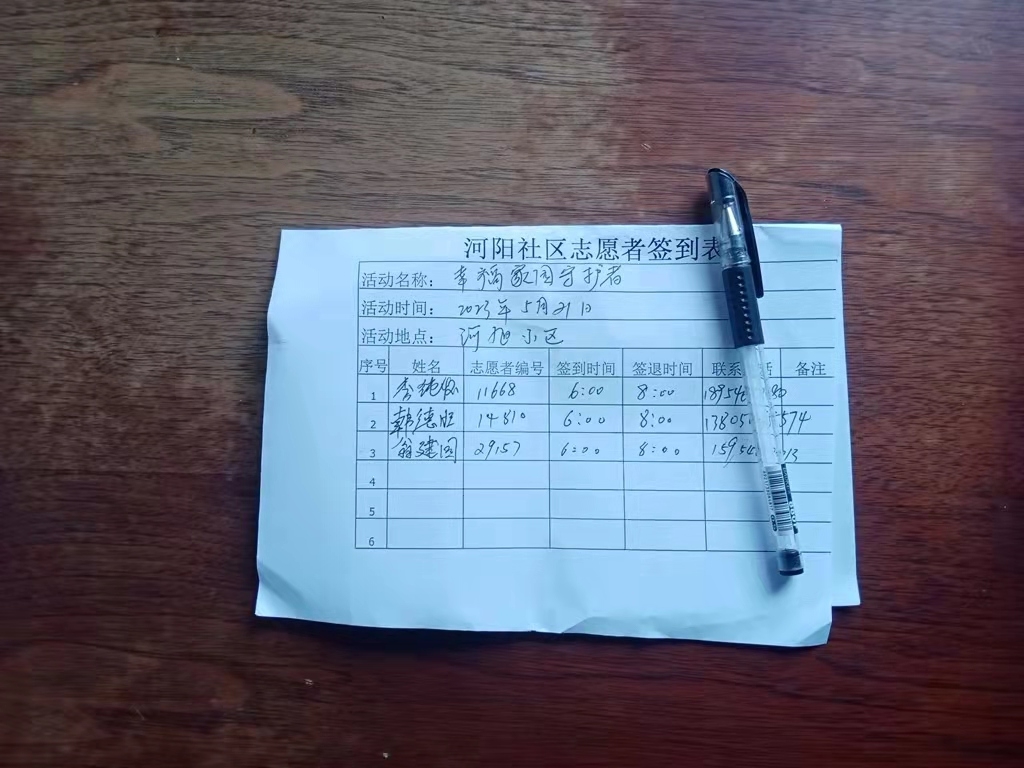 河阳社区志愿者签到表
活动名称: 幸福家园守护者
活动时间: 2023年5月21日
活动地点: 河旭小区
序号 姓名 志愿者编号 签到时间 签退时间 联系 话 备注
1 李纯怀 11668 6:00 8:00 18954 80
2 韩德旺 14810 6:00 8:00 13805 574
3 翁建国 29157 6:00 8:00 15954 13
4
5
6